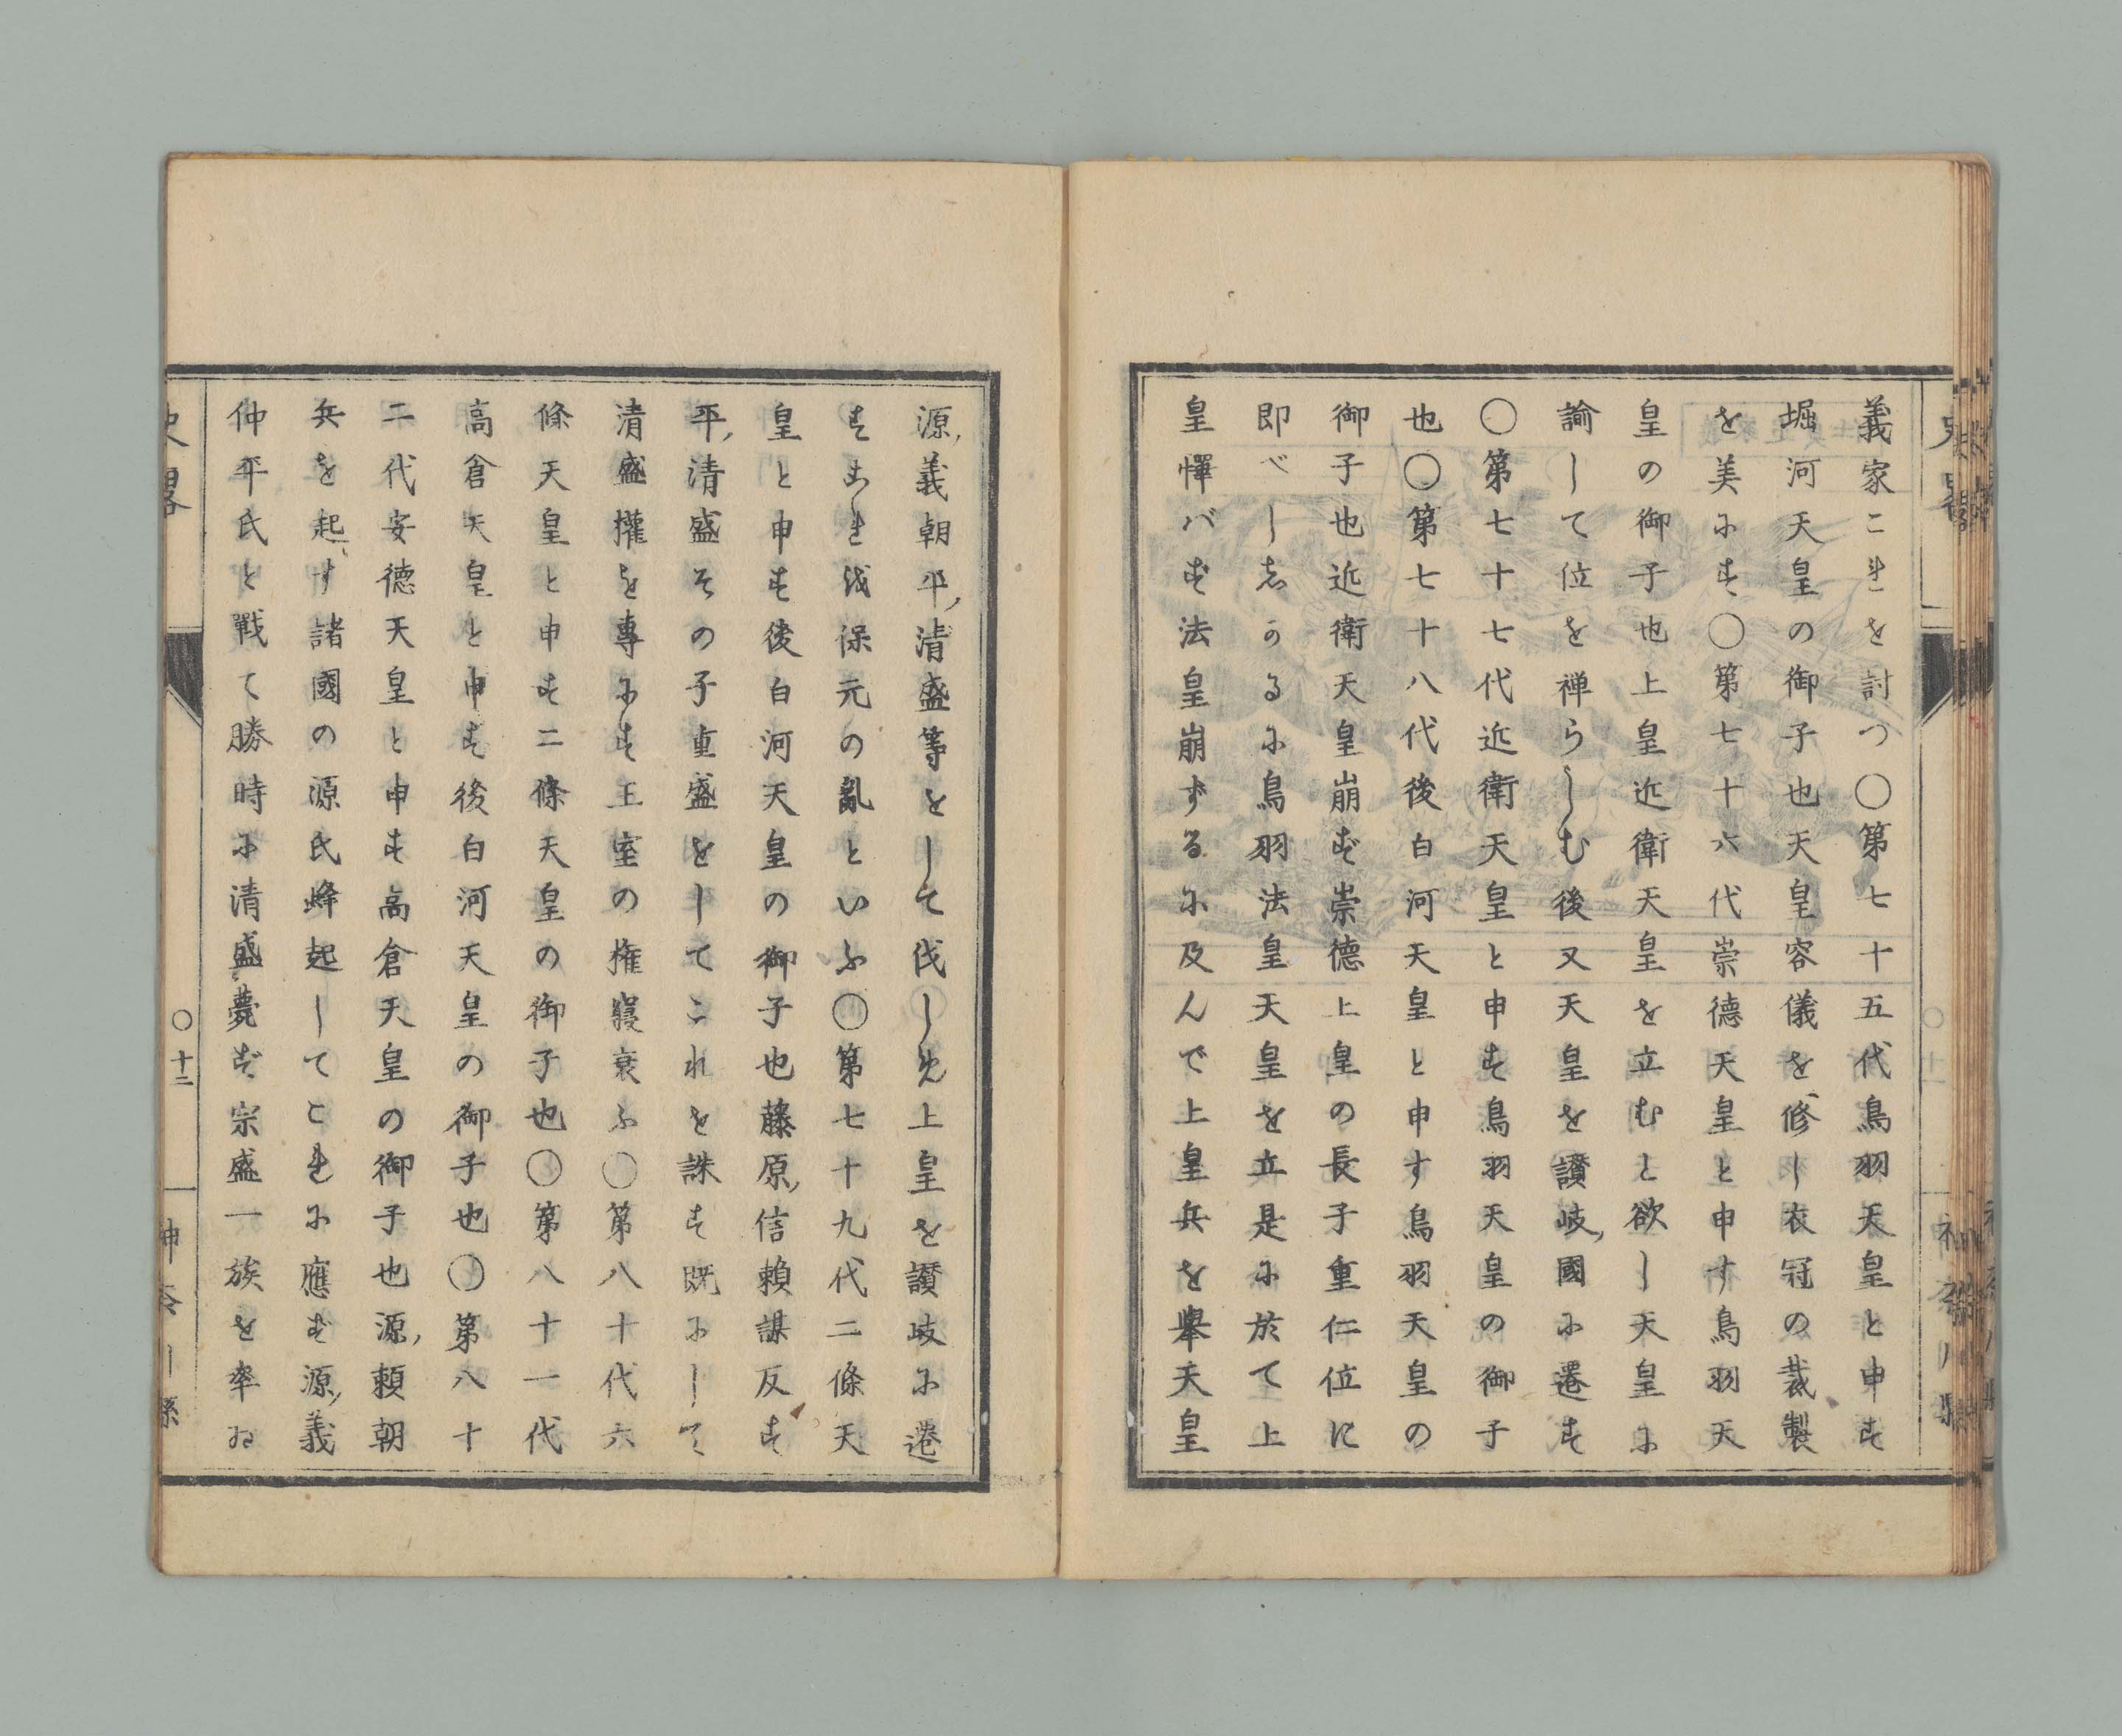 義家これを討つ〇第七十五代鳥羽天皇と申す
堀河天皇の御子也天皇容儀を修し衣冠の裁製
を美にす〇第七十六代崇徳天皇と申す鳥羽天
皇の御子也上皇近衛天皇を立むと欲し天皇に
諭して位を禅らしむ後又天皇を讃岐國に遷す
〇第七十七代近衛天皇と申す鳥羽天皇の御子
也〇第七十八代後白河天皇と申す鳥羽天皇の
御子也近衛天皇崩ず崇徳上皇の長子重仁位に
即べしあるに鳥羽法皇天皇を立是に於て上
皇懌バず法皇崩ずるに及んで上皇兵を舉天皇
源義朝平清盛等をして伐しめ上皇を讃岐に遷
すこれを保元の亂といふ〇第七十九代二條天
皇と申す後白河天皇の御子也藤原信頼謀反す
平清盛その子重盛をしてこれを誅す既にして
清盛權を專にす王室の権寝衰ふ〇第八十代六
條天皇と申す二條天皇の御子也〇第八十一代
高倉天皇と申す後白河天皇の御子也〇第八十
二代安徳天皇と申す高倉天皇の御子也源頼朝
兵を起す諸國の源氏蜂起してこれに應ず源義
仲平氏と戰て勝時に清盛薨ず宗盛一族を率ゐ
史畧
〇十二